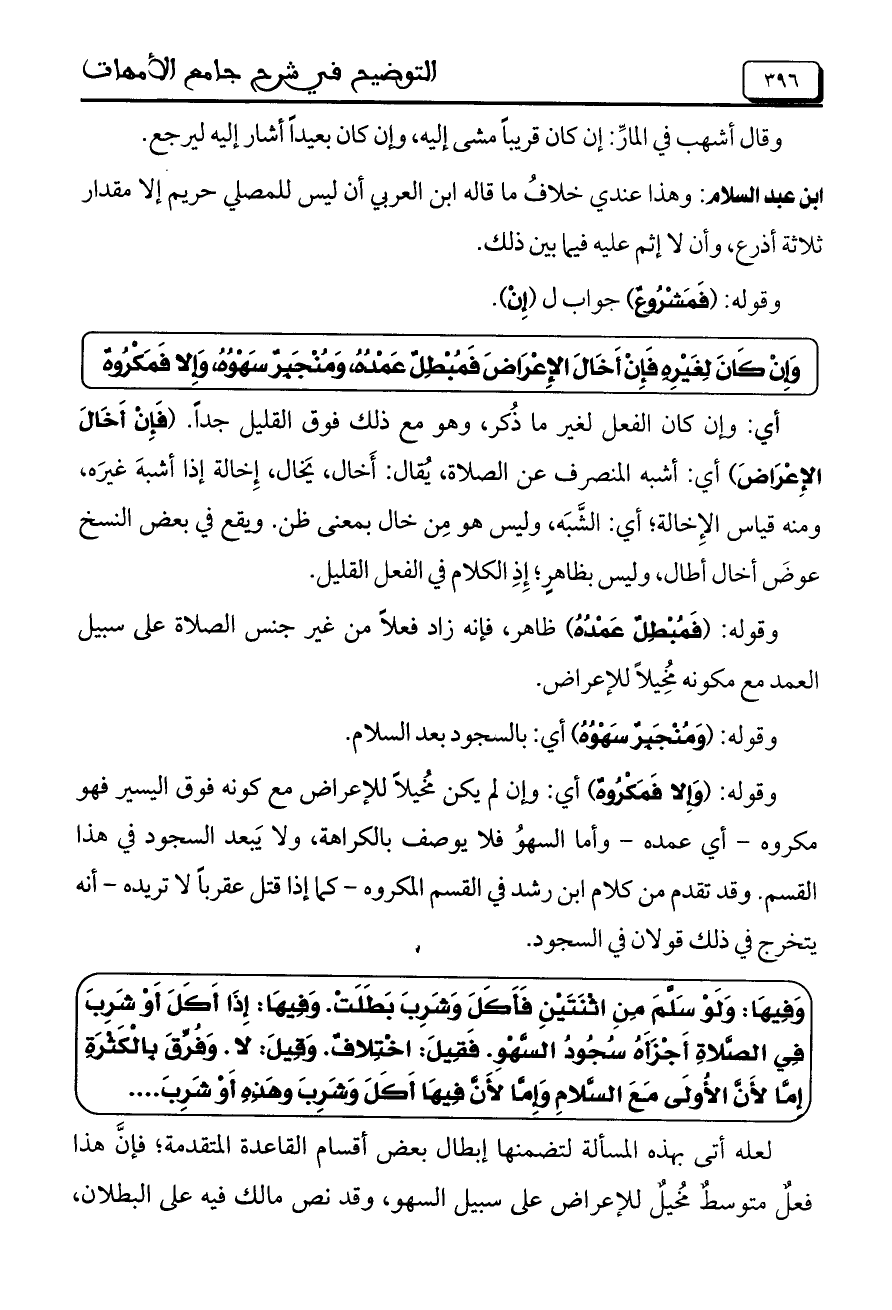 ٣٩٦
التوضيح في شرح جامع الأمهات
وقال أشهب في المارِّ: إن كان قريباً مشى إليه، وإن كان بعيداً أشار إليه ليرجع.
ابن عبد السلام: وهذا عندي خلافُ ما قاله ابن العربي أن ليس للمصلي حريم إلا مقدار
ثلاثة أذرع، وأن لا إثم عليه فيما بين ذلك.
وقوله: (فَمَشْرُوعٌ) جواب ل (إِنْ).
وَإِنْ كَانَ لِغَيْرِهِ فَإِنْ أَخَالَ الإِعْرَاضَ فَمُبْطِلٌ عَمْدُهُ، وَمُنْجَبِرٌ سَهْوُهُ، وَإِلا فَمَكْرُوهٌ
أي: وإن كان الفعل لغير ما ذُكر، وهو مع ذلك فوق القليل جداً. (فَإِنْ أَخَالَ
الإِعْرَاضَ) أي: أشبه المنصرف عن الصلاة، يُقال: أَخال، يَخال، إِخالة إذا أشبهَ غيرَه،
ومنه قياس الإِخالة؛ أي: الشَّبَه، وليس هو مِن خال بمعنى ظن. ويقع في بعض النسخ
عوضَ أخال أطال، وليس بظاهرٍ؛ إِذِ الكلام في الفعل القليل.
وقوله: (فَمُبْطِلٌ عَمْدُهُ) ظاهر، فإنه زاد فعلاً من غير جنس الصلاة على سبيل
العمد مع مكونه مُخِيلاً للإعراض.
وقوله: (وَمُنْجَبِرٌ سَهْوُهُ) أي: بالسجود بعد السلام.
وقوله: (وَإِلا فَمَكْرُوهٌ) أي: وإن لم يكن مُخيلاً للإعراض مع كونه فوق اليسير فهو
مكروه – أي عمده – وأما السهوُ فلا يوصف بالكراهة، ولا يَبعد السجود في هذا
القسم. وقد تقدم من كلام ابن رشد في القسم المكروه – كما إذا قتل عقرباً لا تريده – أنه
يتخرج في ذلك قولان في السجود.
وَفِيهَا: وَلَوْ سَلَّمَ مِنِ اثْنَتَيْنِ فَأَكَلَ وَشَرِبَ بَطَلَتْ. وَفِيهَا: إِذَا أَكَلَ أَوْ شَرِبَ
فِي الصَّلاةِ أَجْزَأَهُ سُجُودُ السَّهْوِ. فَقِيلَ: اخْتِلافٌ. وَقِيلَ: لا. وَفُرِّقَ بِالْكَثْرَةِ
إِمَّا لأَنَّ الأُولَى مَعَ السَّلامِ وَإِمَّا لأَنَّ فِيهَا أَكَلَ وَشَرِبَ وهَذِهِ أَوْ شَرِبَ....
لعله أتى بهذه المسألة لتضمنها إبطال بعض أقسام القاعدة المتقدمة؛ فإنَّ هذا
فعلٌ متوسطٌ مُخيلٌ للإعراض على سبيل السهو، وقد نص مالك فيه على البطلان،